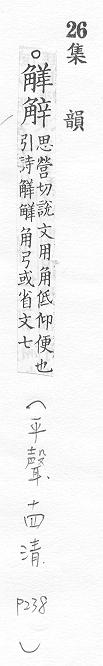 26集韻
○觲觧
思營切說文用角低仰便也
引詩觲觲角弓或省文七
(平聲、十四清 P238)